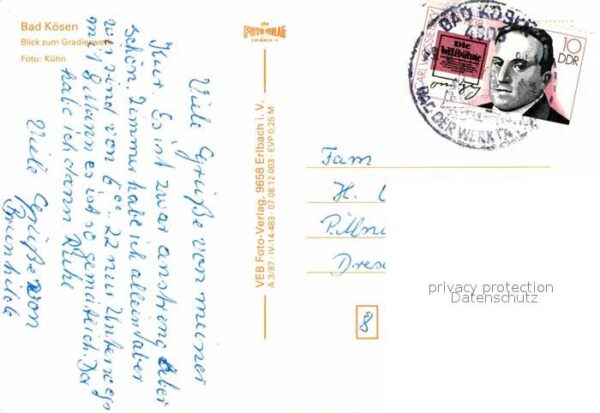 Bad Kösen
Blick zum Gradierwerk
Foto: Kühn
VERLAG
VEB Foto-Verlag, 9658 Erlbach i. V.
A 3/87 · IV-14-483 · 07 08 12 003 · EVP 0,25 M
Viele Grüße von meiner
Kur. Es ist zwar anstreng aber
schön. Zimmer habe ich allein aber
wir sind von 6⁰⁰-22 nur Unterwegs
mit 8 Mann es ist so gemütlich. Der
habe ich dann Ruhe
Viele Grüße von
Brunhilde
BAD KÖSEN
4806
BAD DER WERKTÄ
CARL VON OSSIETZKY
Die
Weltbühne
10
DDR
Fam
H. L
Pillni
Dres
8
privacy protection
Datenschutz